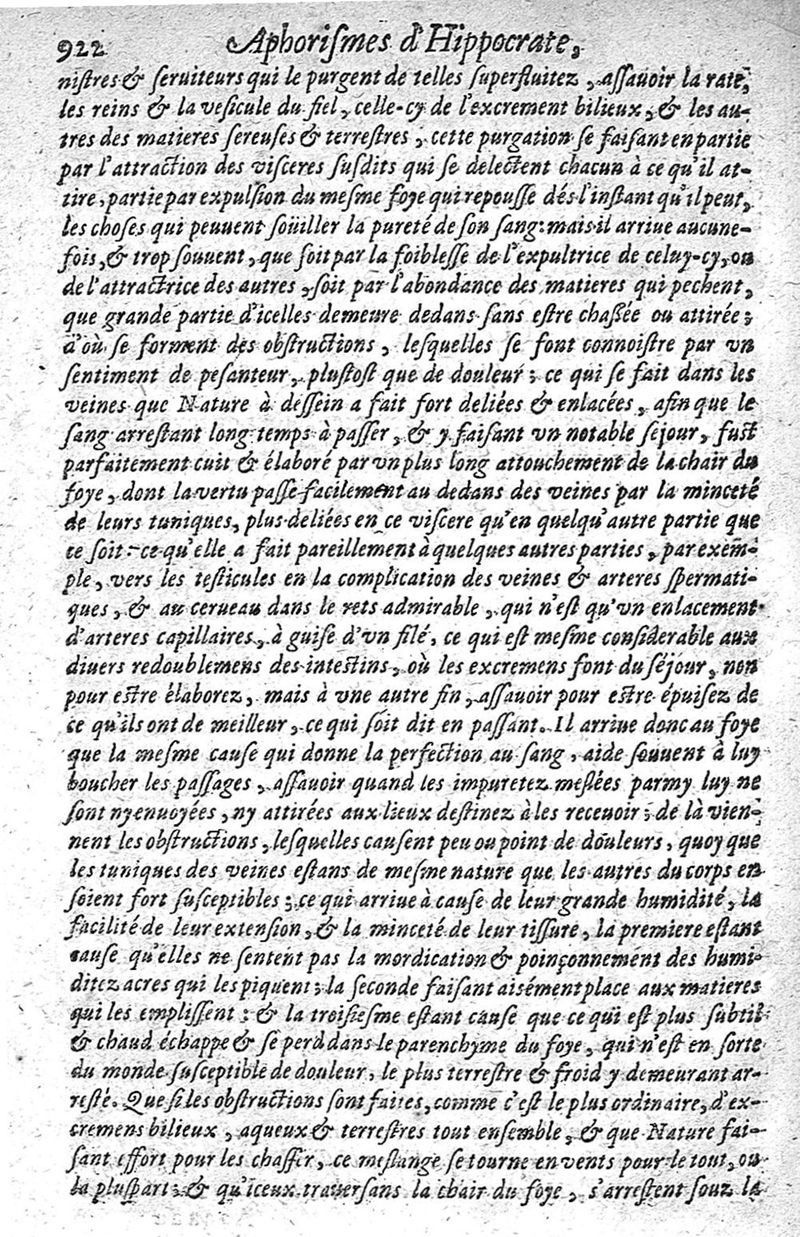 922 Aphoriſmes d'Hippocrate,
niſtres & ſeruiteurs qui le purgent de telles ſuperfluitez, aſſauoir la rate,
les reins & la veſicule du fiel, celle-cy de l'excrement bilieux, & les au-
tres des matieres ſereuſes & terreſtres, cette purgation ſe faiſant en partie
par l'attraction des viſceres ſuſdits qui ſe delectent chacun à ce qu'il at-
tire, partie par expulſion du meſme foye qui repouſſe dés l'inſtant qu'il peut,
les choſes qui peuuent soüiller la pureté de ſon ſang: mais il arriue aucune-
fois, & trop ſouuent, que ſoit par la foibleſſe de l'expultrice de celuy-cy, ou
de l'attractrice des autres, ſoit par l'abondance des matieres qui pechent,
que grande partie d'icelles demeure dedans ſans eſtre chaſſée ou attirée;
d'où ſe forment des obſtructions, leſquelles ſe font connoiſtre par vn
ſentiment de peſanteur, pluſtoſt que de douleur; ce qui ſe fait dans les
veines que Nature à deſſein a fait fort deliées & enlacées, afin que le
ſang arreſtant long temps à paſſer, & y faiſant vn notable ſejour, fuſt
parfaitement cuit & élaboré par vn plus long attouchement de la chair du
foye, dont la vertu paſſe facilement au dedans des veines par la minceté
de leurs tuniques, plus deliées en ce viſcere qu'en quelqu'autre partie que
ce ſoit: ce qu'elle a fait pareillement à quelques autres parties, par exem-
ple, vers les teſticules en la complication des veines & arteres ſpermati-
ques, & au cerueau dans le rets admirable, qui n'eſt qu'vn enlacement
d'arteres capillaires, à guiſe d'vn filé, ce qui eſt meſme conſiderable aux
diuers redoublemens des inteſtins, où les excremens font du ſéjour, non
pour eſtre élaborez, mais à vne autre fin, aſſauoir pour eſtre épuiſez de
ce qu'ils ont de meilleur, ce qui ſoit dit en paſſant. Il arriue donc au foye
que la meſme cauſe qui donne la perfection au ſang, aide ſouuent à luy
boucher les paſſages, aſſauoir quand les impuretez meſlées parmy luy ne
ſont ny enuoyées, ny attirées aux lieux deſtinez à les receuoir; de là vien-
nent les obſtructions, leſquelles cauſent peu ou point de douleurs, quoy que
les tuniques des veines eſtans de meſme nature que les autres du corps en
ſoient fort ſuſceptibles; ce qui arriue à cauſe de leur grande humidité, la
facilité de leur extenſion, & la minceté de leur tiſſure, la premiere eſtant
cauſe qu'elles ne ſentent pas la mordication & poinçonnement des humi-
ditez acres qui les piquent; la ſeconde faiſant aiſément place aux matieres
qui les empliſſent: & la troiſieſme eſtant cauſe que ce qui eſt plus ſubtil
& chaud échappe & ſe perd dans le parenchyme du foye, qui n'eſt en ſorte
du monde ſuſceptible de douleur, le plus terreſtre & froid y demeurant ar-
reſté. Que ſi les obſtructions ſont faites, comme c'eſt le plus ordinaire, d'ex-
cremens bilieux, aqueux & terreſtres tout enſemble, & que Nature fai-
ſant effort pour les chaſſer, ce meſlange ſe tourne en vents pour le tout, ou
la pluſpart; & qu'iceux trauerſans la chair du foye, s'arreſtent ſouz la